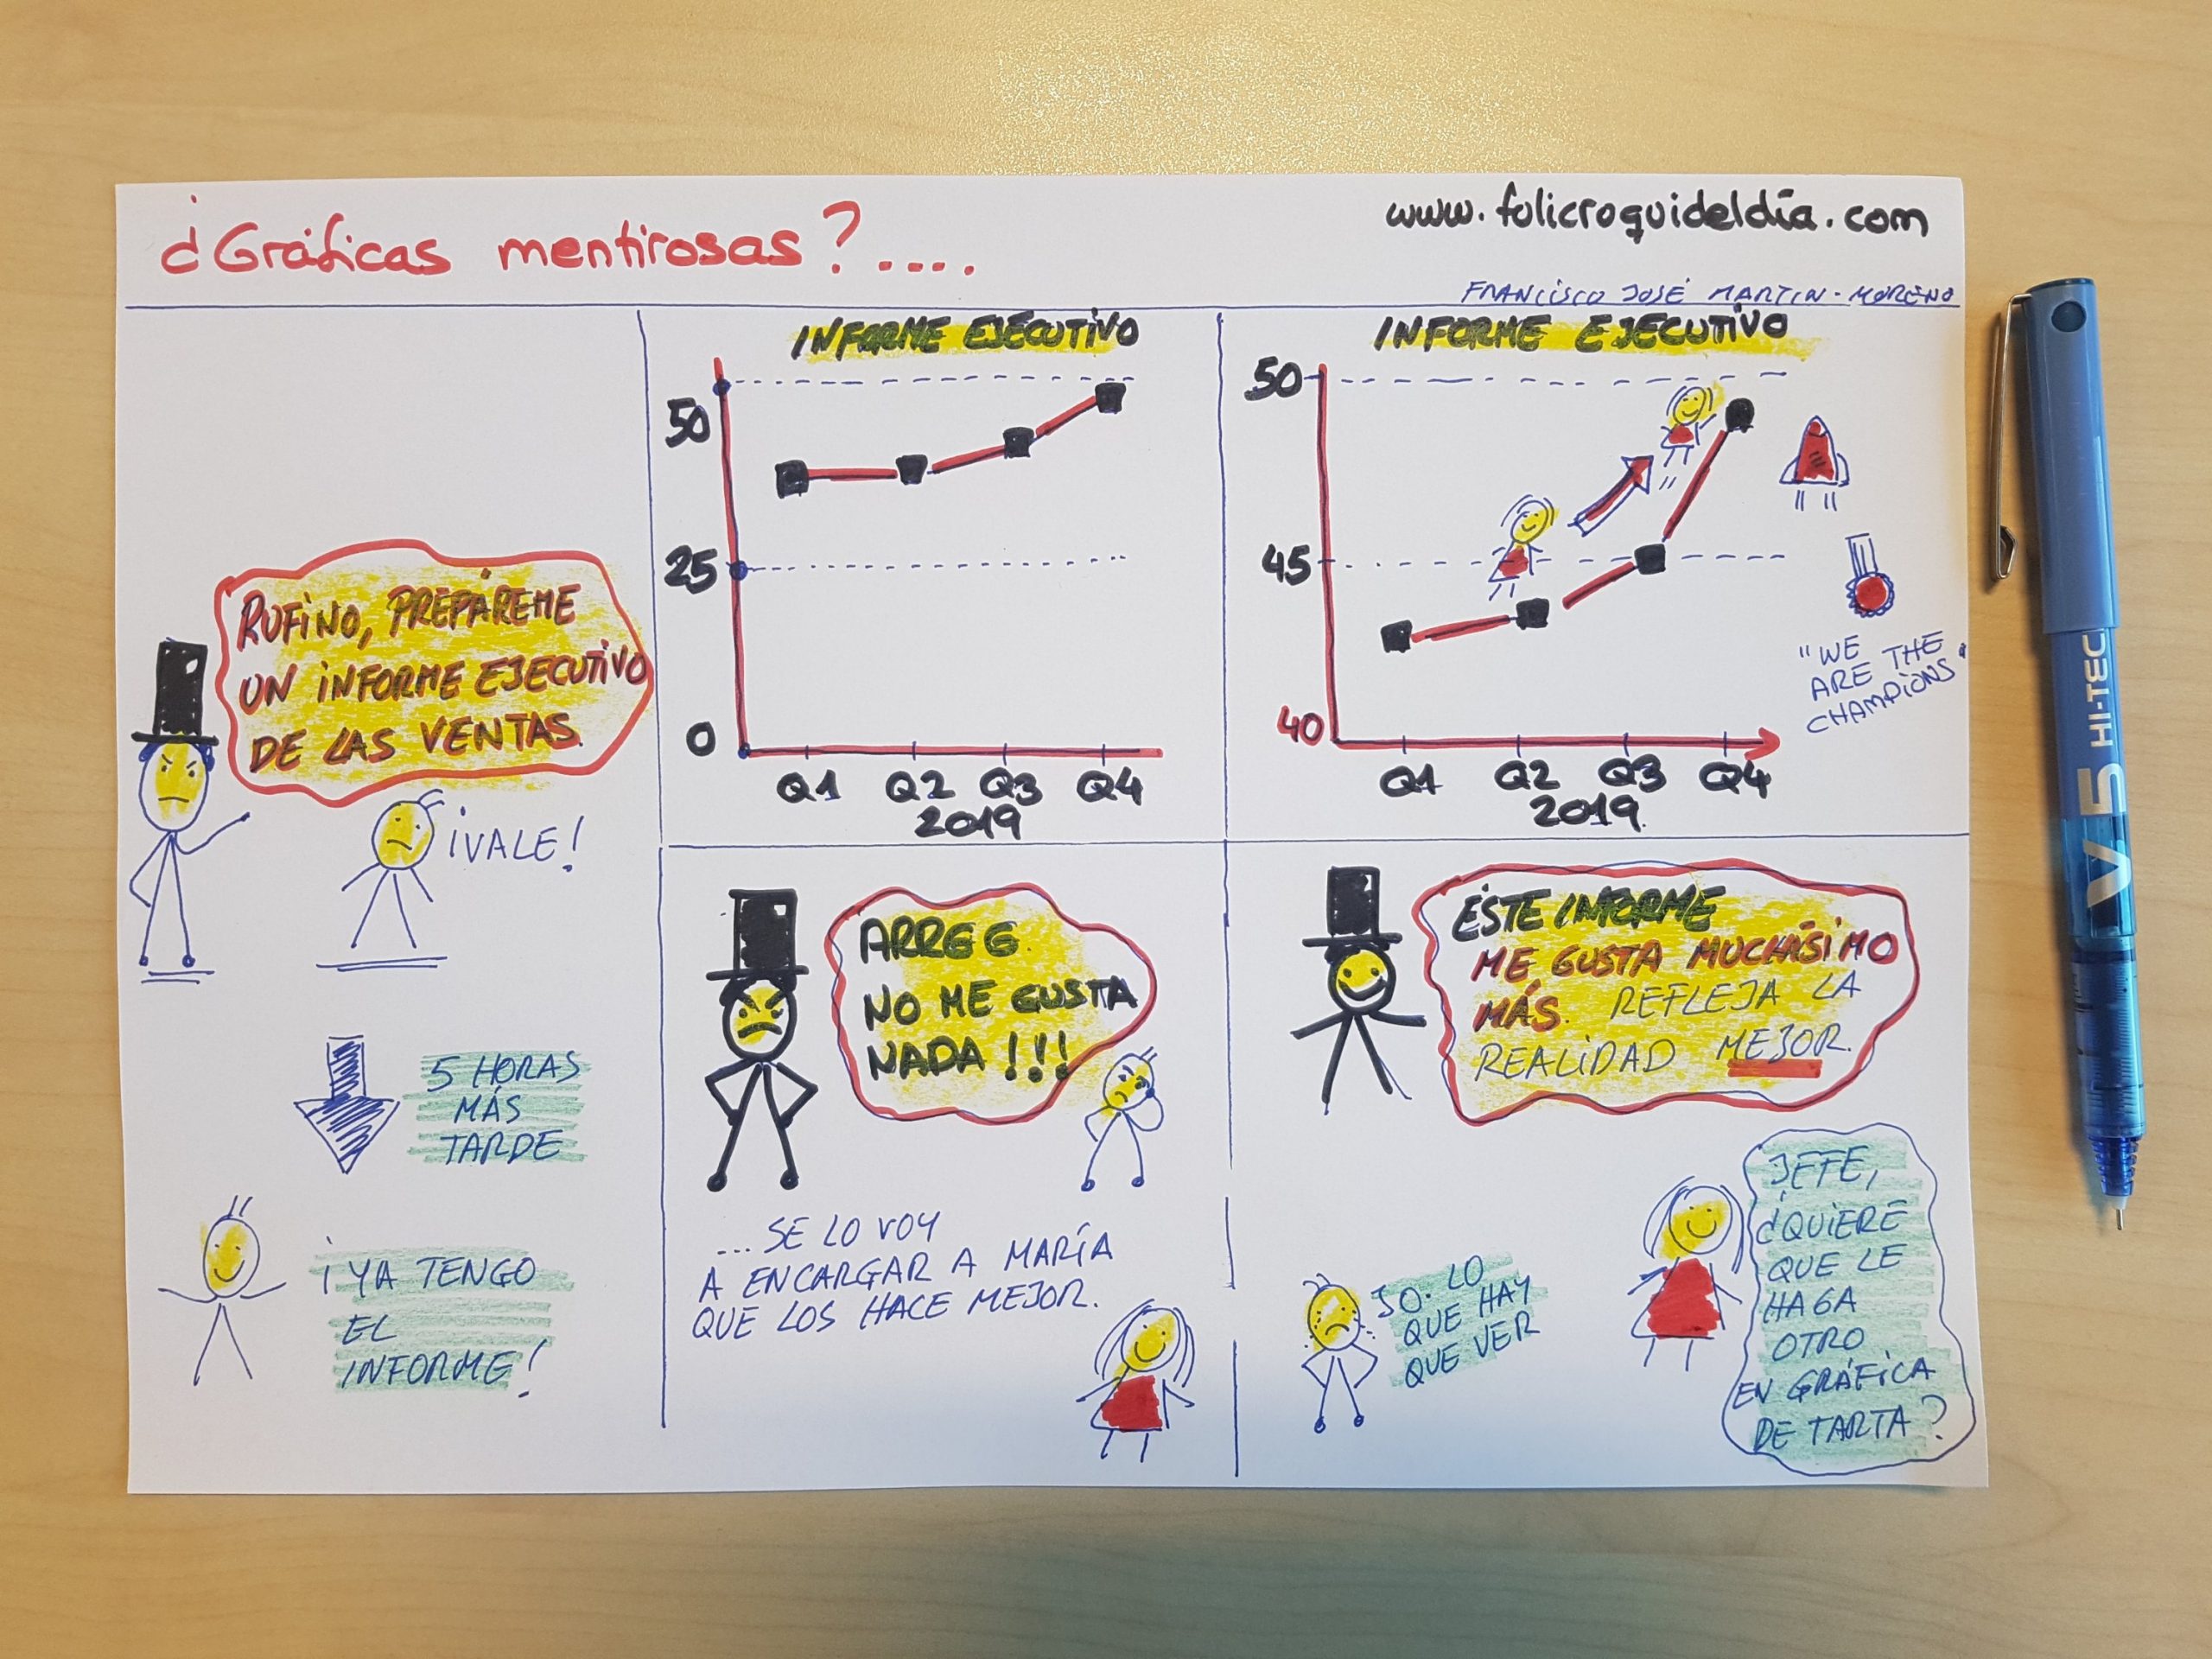 ¿Gráficas mentirosas?....
www.folicroquideldía.com
FRANCISCO JOSÉ MARTIN-MORENO
RUFINO, PREPÁREME
UN INFORME EJECUTIVO
DE LAS VENTAS.
¡VALE!
5 HORAS
MÁS
TARDE
¡YA TENGO
EL
INFORME!
INFORME EJECUTIVO
50
25
0
Q1 Q2 Q3 Q4
2019
ARRGG
NO ME GUSTA
NADA!!!
...SE LO VOY
A ENCARGAR A MARÍA
QUE LOS HACE MEJOR.
INFORME EJECUTIVO
50
45
40
Q1 Q2 Q3 Q4
2019.
"WE
ARE THE
CHAMPIONS"
ESTE INFORME
ME GUSTA MUCHÍSIMO
MÁS. REFLEJA LA
REALIDAD MEJOR.
JO. LO
QUE HAY
QUE VER
JEFE,
¿QUIERE
QUE LE
HAGA
OTRO
EN GRÁFICA
DE TARTA?
V5 HI-TEC